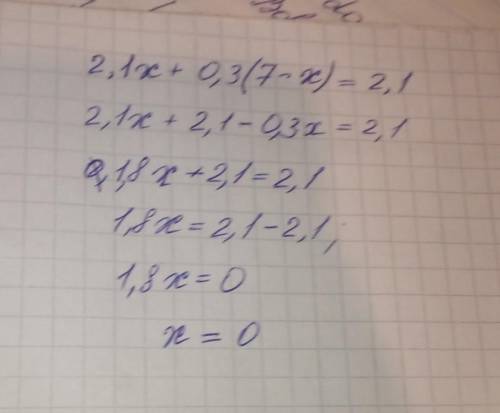 2,1x + 0,3(7-x) = 2,1
2,1x + 2,1 - 0,3x = 2,1
1,8x + 2,1 = 2,1
1,8x = 2,1 - 2,1;
1,8x = 0
x = 0